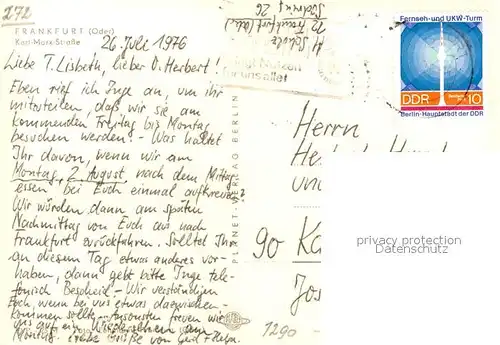 272
FRANKFURT (Oder)
Karl-Marx-Straße
26. Juli 1976
Liebe T. Lisbeth, lieber O. Herbert!
Eben rief ich Inge an, um ihr
mitzuteilen, daß wir sie am
kommenden Freitag bis Montag
besuchen werden. - Was haltet
Ihr davon, wenn wir am
Montag, 2. August, nach dem Mittag-
essen bei Euch einmal aufkreuzen?
Wir würden dann am späten
Nachmittag von Euch aus nach
Frankfurt zurückfahren. Solltet Ihr
an diesem Tag etwas anderes vor-
haben, dann gebt bitte Inge tele-
fonisch Bescheid. - Wir verständigen
Euch, wenn bei uns etwas dazwischen-
kommen sollte. - Ansonsten freuen wir
uns auf ein Wiedersehen am
Montag. Liebe Grüße von
PLANET-VERLAG BERLIN
Scholz
Frankfurt (Oder)
26
Nutzen
für uns alle!
Fernseh- und UKW-Turm
DDR
10
Berlin-Hauptstadt der DDR
Herrn
und
90
Jos
1290
privacy protection
Datenschutz